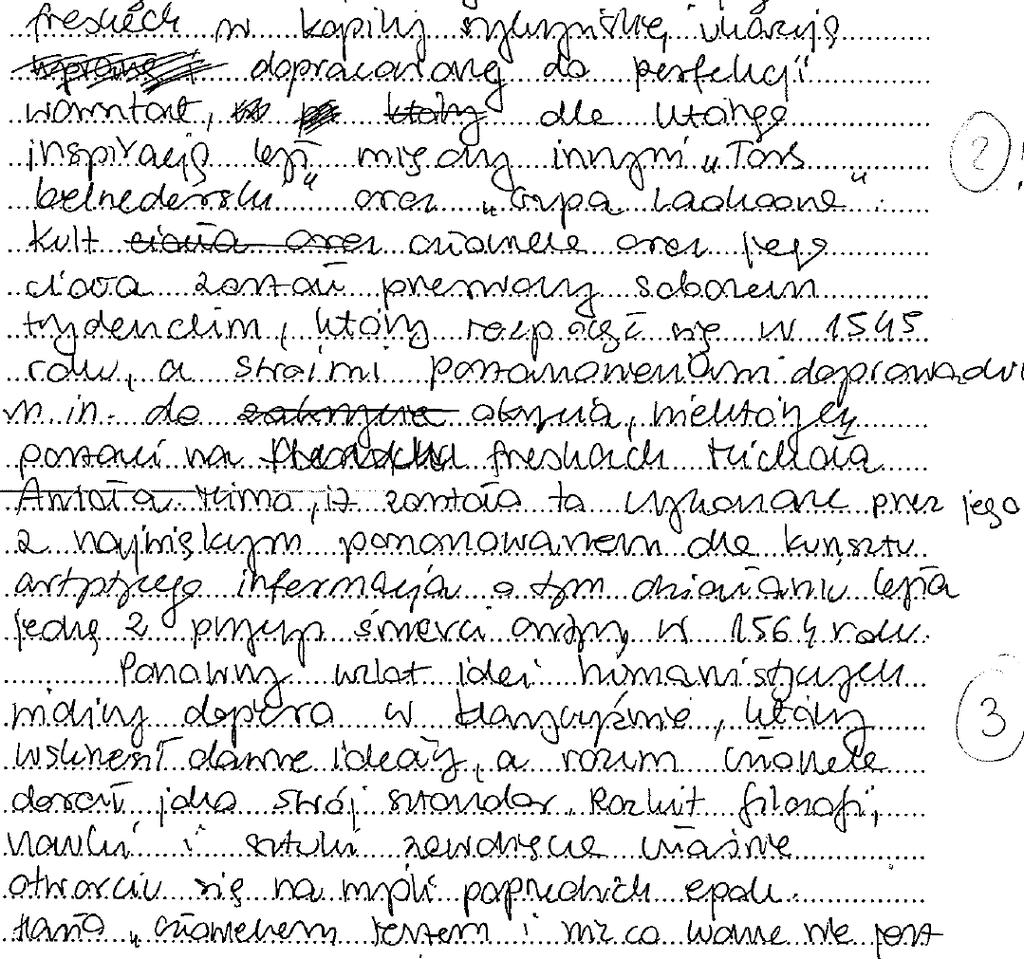 freskach w kaplicy sykstyńskiej ukazują
dopracowany do perfekcji
warsztat, który dla którego
inspiracją był między innymi „Tors
belwederski" oraz „Grupa Laokoona"
Kult ciała oraz człowieka oraz jego
ciała został przerwany soborem
trydenckim, który rozpoczął się w 1545
roku, a swoimi postanowieniami doprowadził
m.in. do zakrycia okrycia, niektórych
postaci na freskach Michała
Anioła. Mimo, iż została to wykonane przez jego
z największym poszanowaniem dla kunsztu
artysty informacja o tym działaniu była
jedną z przyczyn śmierci artysty w 1564 roku.
Ponowny wzlot idei humanistycznych
widzimy dopiero w klasycyzmie, który
wskrzesił dawne ideały, a rozum człowieka
obrał jako swój sztandar. Rozkwit filozofii,
nauki i sztuki zawdzięcza właśnie
otwarciu się na myśli poprzednich epok.
Hasło „człowiekiem jestem i nic co ludzkie nie jest
2
3